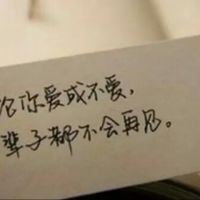 论你爱或不爱，
辈子都不会再见。